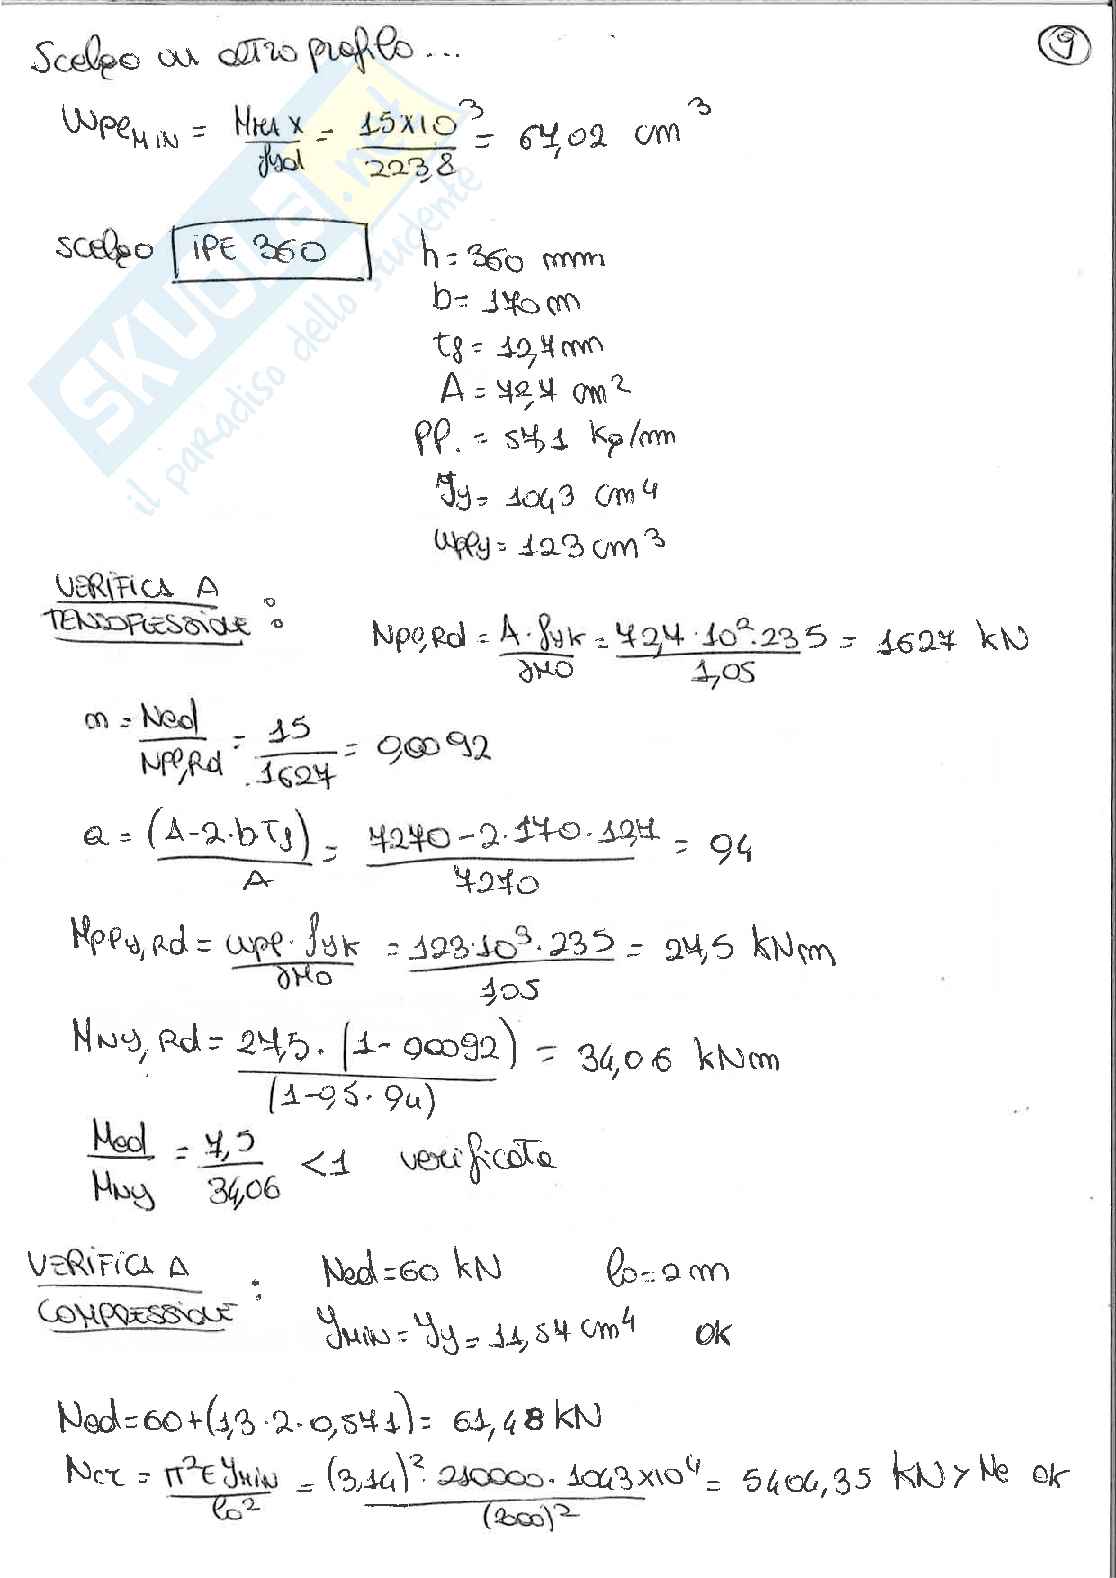 9
Scelgo un altro profilo...
Wpl MIN = Mmax / fyd = 15x10³ / 223,8 = 67,02 cm³
scelgo IPE 360
h = 360 mm
b = 170 m
tf = 12,7 mm
A = 72,7 cm²
PP. = 57,1 Kg/mm
Jy = 1043 cm⁴
Wply = 123 cm³
VERIFICA A
TENSOFLESSIONE :
Npl,Rd = A · fyk / γM0 = 72,7 · 10² · 235 / 1,05 = 1627 kN
n = Ned / Npl,Rd = 15 / 1627 = 0,0092
a = (A-2·b Tf) / A = 7270 - 2 · 170 · 12,7 / 7270 = 94
Mply,Rd = Wpl · fyk / γM0 = 123·10³ · 235 / 1,05 = 27,5 kNm
MNy,Rd = 27,5 · (1 - 0,0092) / (1 - 0,5 · 0,4) = 34,06 kNm
Med / MNy = 7,5 / 34,06 < 1 verificata
VERIFICA A
COMPRESSIONE :
Ned = 60 kN lo = 2 m
JMIN = Jy = 11,57 cm⁴ OK
Ned = 60 + (1,3 · 2 · 0,571) = 61,48 kN
Ncr = π²E JMIN / lo² = (3,14)² · 210000 · 1043x10⁴ / (2000)² = 5404,35 kN > Ne OK
SKUOLA.net
il paradiso dello studente